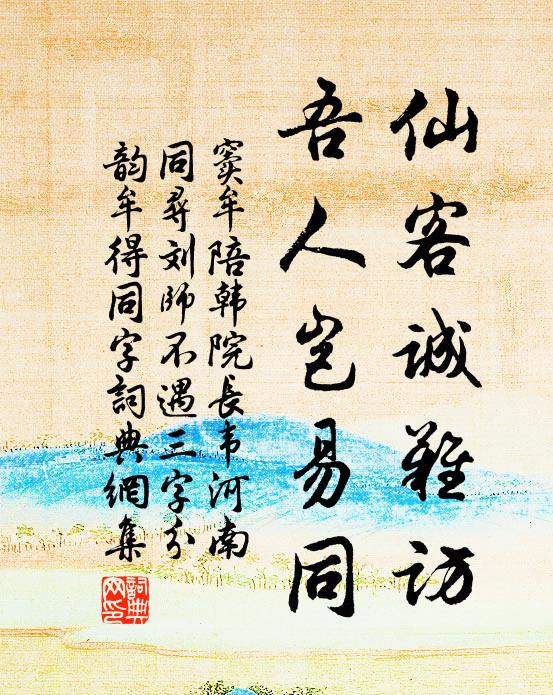 仙客诚难访
吾人岂易同
窦牟陪韩院长韦河南
同寻刘师不遇三字分
韵牟得同字词典網集
詞典
网印